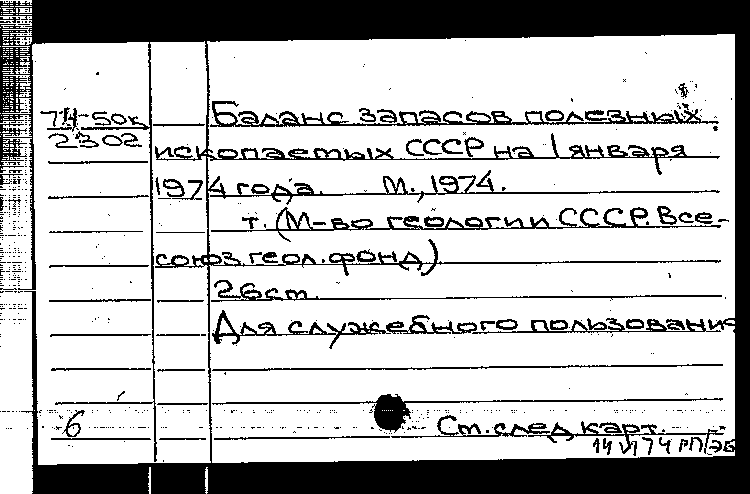 74-50к Баланс запасов полезных
2302
ископаемых СССР на 1 января
1974 года. М., 1974.
т. (М-во геологии СССР. Все-
союз. геол. фонд)
26 ст.
Для служебного пользования
6 Ст. след. карт.
14 VI 74 РП/ЭБ